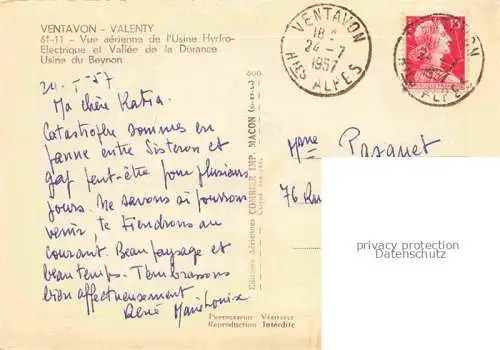 VENTAVON - VALENTY
61-11 - Vue aérienne de l'Usine Hydro-
Electrique et Vallée de la Durance
Usine du Beynon
VENTAVON
18
24-7
1957
Htes ALPES
15
24-7
1957
Ma chère Katia.
Catastrophe sommes en
panne entre Sisteron et
gap peut-être pour plusieurs
jours. Ne savons si pourrons
venir, te tiendrons au
courant. Beau paysage et
beau temps. T'embrassons
bien affectueusement
René Marie Louise
Mme Pasquet
76 Rue
Editions Aériennes COMBIER IMP. MACON
Photographie Véritable
Reproduction Interdite
privacy protection
Datenschutz